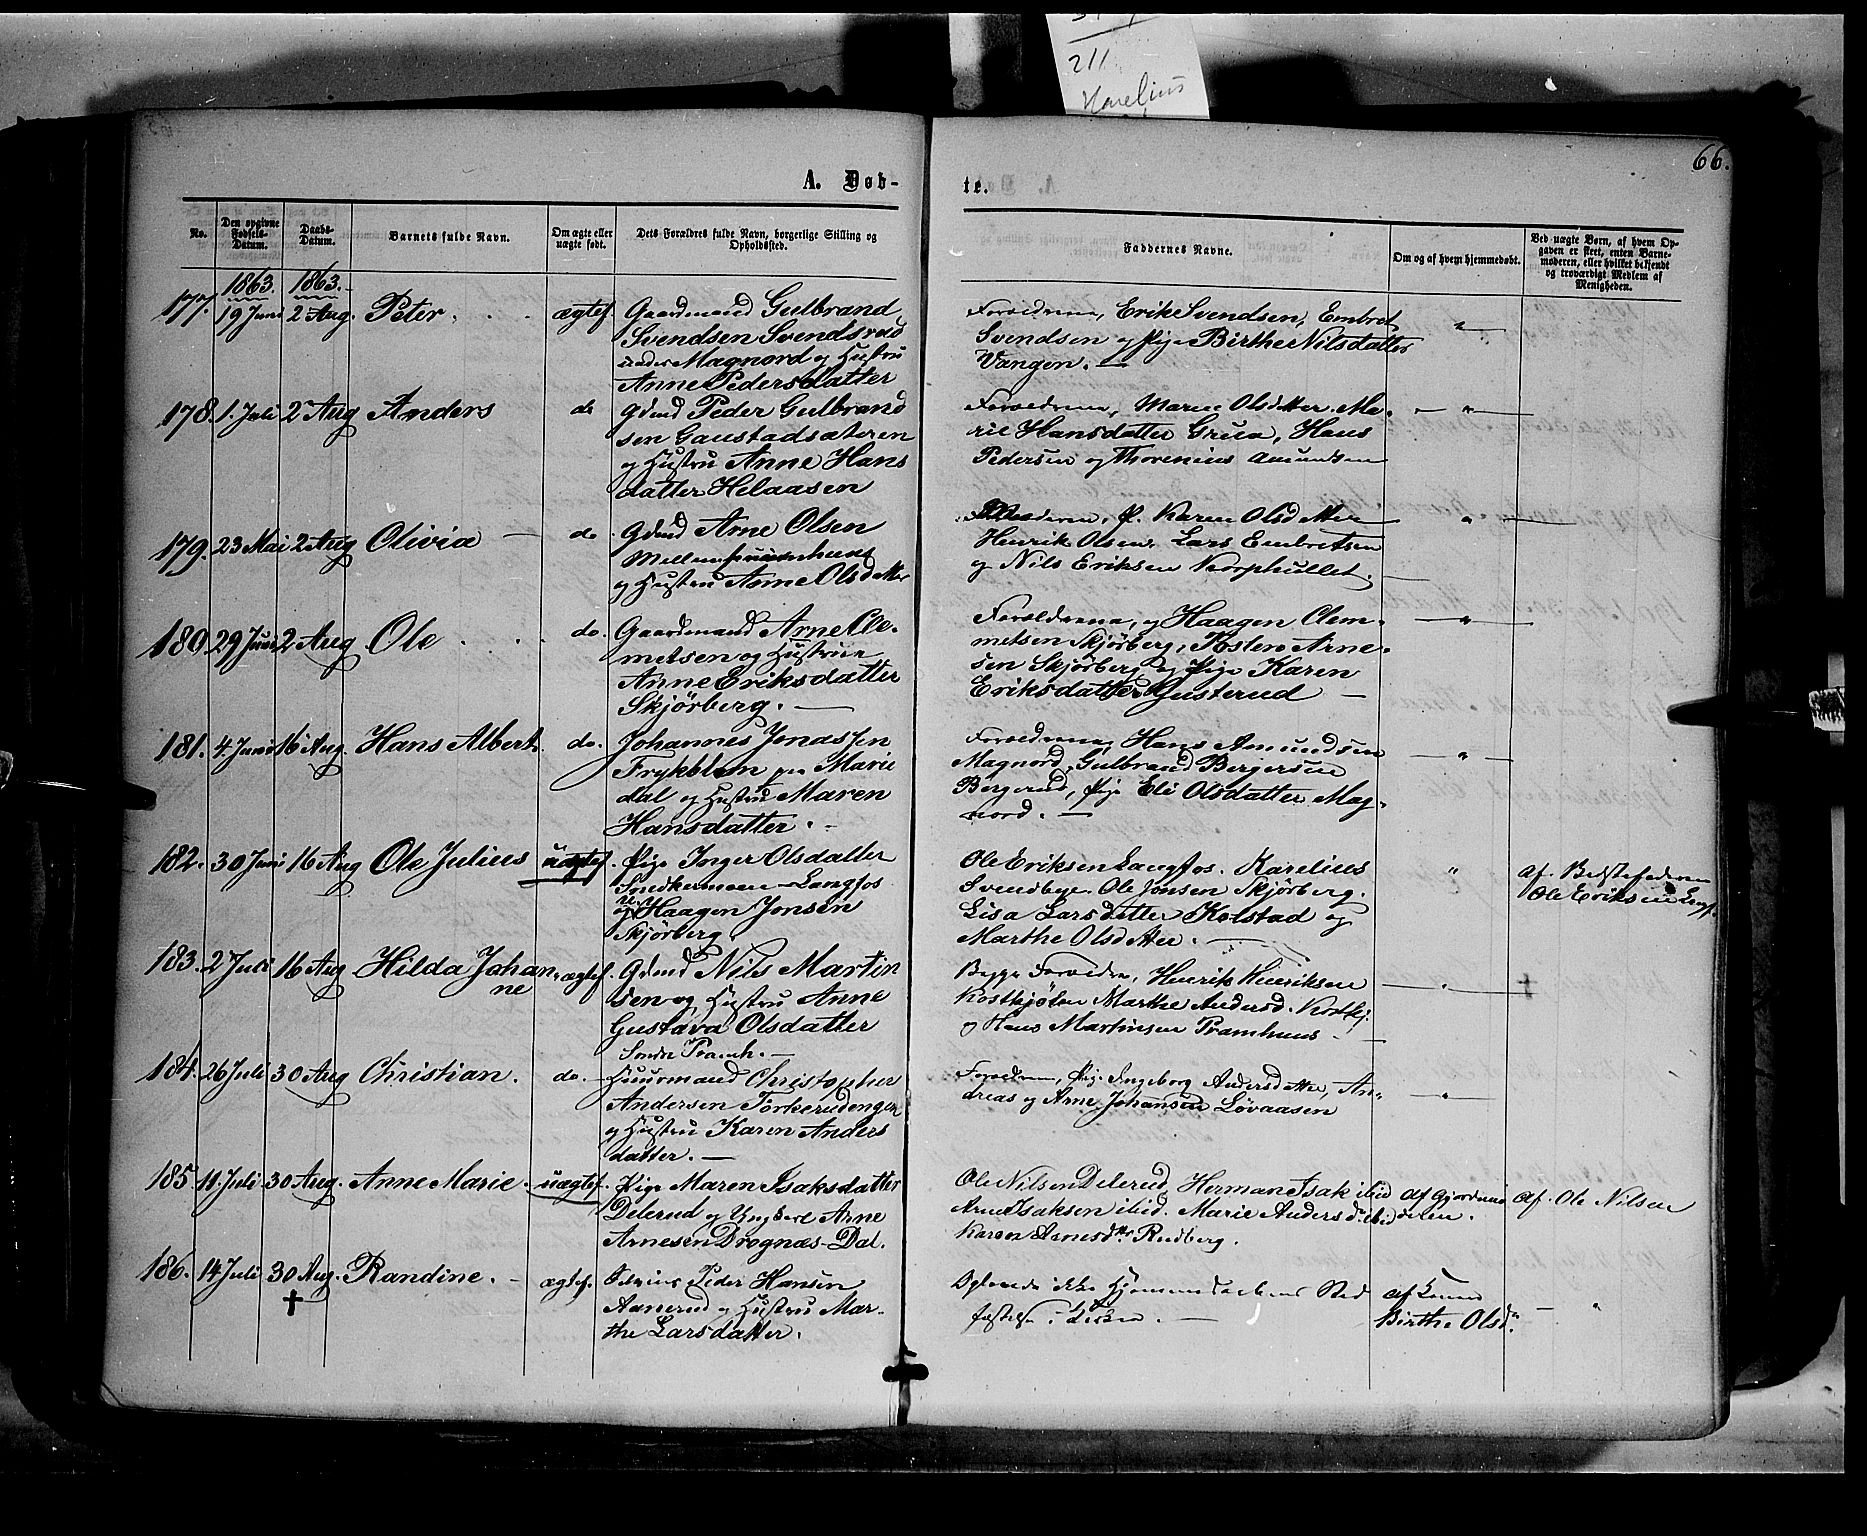 211
Karelius
66.
A. Døb-
te.
No.
Den opgivne Fødsels-Datum.
Daabs-Datum.
Barnets fulde Navn.
Om ægte eller uægte født.
Dets Forældres fulde Navn, borgerlige Stilling og Opholdssted.
Faddernes Navne.
Om og af hvem hjemmedøbt.
Ved uægte Børn, af hvem Opgaven er skeet, enten Barnemoderen, eller hvilket bekjendt og troværdigt Medlem af Menigheden.
1863. 1863.
177. 19 Juni 2 Aug. Peter ægtef. Gaardmand Gulbrand
Svendsen Svendsrud
under Magnord og Hustru
Anne Pedersdatter
Forældrene, Erik Svendsen, Embret
Svendsen og Pige Birthe Nilsdatter
Vangen. —
178. 1. Juli 2 Aug Anders do Gdmd Peder Gulbrand
sen Gaustadsæteren
og Hustru Anne Hans
datter Helaasen
Forældrene, Maren Olsdatter, Ma-
rie Hansdatter Grua, Hans
Pedersen og Thorenius Amundsen
179. 23 Mai 2 Aug Olivia — do. Gdmd Arne Olsen
og Hustru Anne Olsdatter
Forældrene, P. Karen Olsdatter
Henrik Olsen, Lars Embretsen
og Nils Eriksen Korphullet.
180 29 Juni 2 Aug Ole do. Gaardmand Arne Cle-
metsen og Hustrue
Anne Eriksdatter
Skjørberg. —
Forældrene, og Haagen Clem-
metsen Skjørberg, Kosten Arne-
sen Skjørberg og Pige Karen
Eriksdatter Gusterud —
181. 4 Juni 16 Aug. Hans Albert. do. Johannes Jonassen
Frykblem paa Marie
dal og Hustru Maren
Hansdatter. -
Forældrene, Hans Amundsen
Magnord, Gulbrand Bergersen
Bergerud, Pige Eli Olsdatter Mag-
nord. —
182. 30 Juni 16 Aug Ole Julius uægtef. Pige Inger Olsdatter
Snekkermoen-Langfos
og Haagen Jonsen
Skjørberg
Ole Eriksen Langfos. Karelius
Svendbye. Ole Jonsen Skjørberg.
Lisa Larsdatter Kolstad og
Marthe Olsdatter. —
af Bedstefaderen
Ole Eriksen Langf.
183. 2 Juli 16 Aug Hilda Johan-
ne ægtef. Gdmd Nils Martin
sen og Hustru Anne
Gustava Olsdatter
Søndre Pramh. —
Begge Forældre, Henrik Henriksen
Kostkjølen Marthe Andersd. Kostkj.
og Hans Martinsen Pramhuus —
184. 26 Juli 30 Aug Christian. do. Huusmand Christopher
Andersen Torkerudengen
og Hustru Karen Anders
datter. —
Forældrene, Pige Ingeborg Andersdatter, An-
dreas og Arne Johansen Løvaasen
185 11. Juli 30 Aug. Anne Marie. uægtef. Pige Maren Isaksdatter
Delerud og Ungkarl Arne
Arnesen Drognæs-Dal.
Ole Nilsen Delerud, Herman Isak ibid
Arne Isaksen ibid. Marie Andersd. ibid
Karen Arnesdtr Rudberg.
af Ole Nilsen
186. 14 Juli 30 Aug. † Randine. — ægtef. Peder Hansen
Aanerud og Hustru Mar-
the Larsdatter.
ikke Hjemmedaabens Stad
fæstelse i Kirken. —
af Konen
Birthe Olsdr.